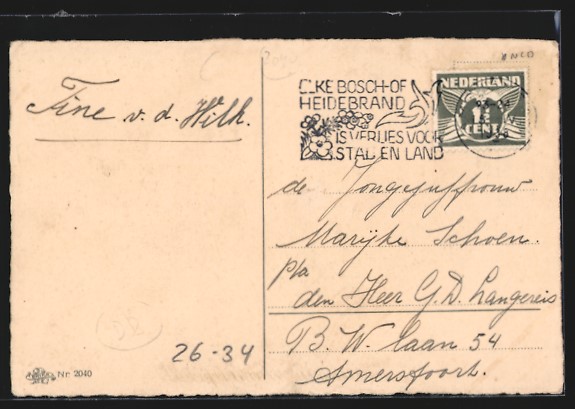 Fine v. d. Wilh.
ELKE BOSCH-OF
HEIDEBRAND
IS VERLIES VOOR
STAD EN LAND
NEDERLAND
1½
CENT
de Jongejuffrouw
Marijke Schoen.
p/a
den Heer G.D. Langereis
B. W. laan 54
Amersfoort.
26-34
Nr. 2040